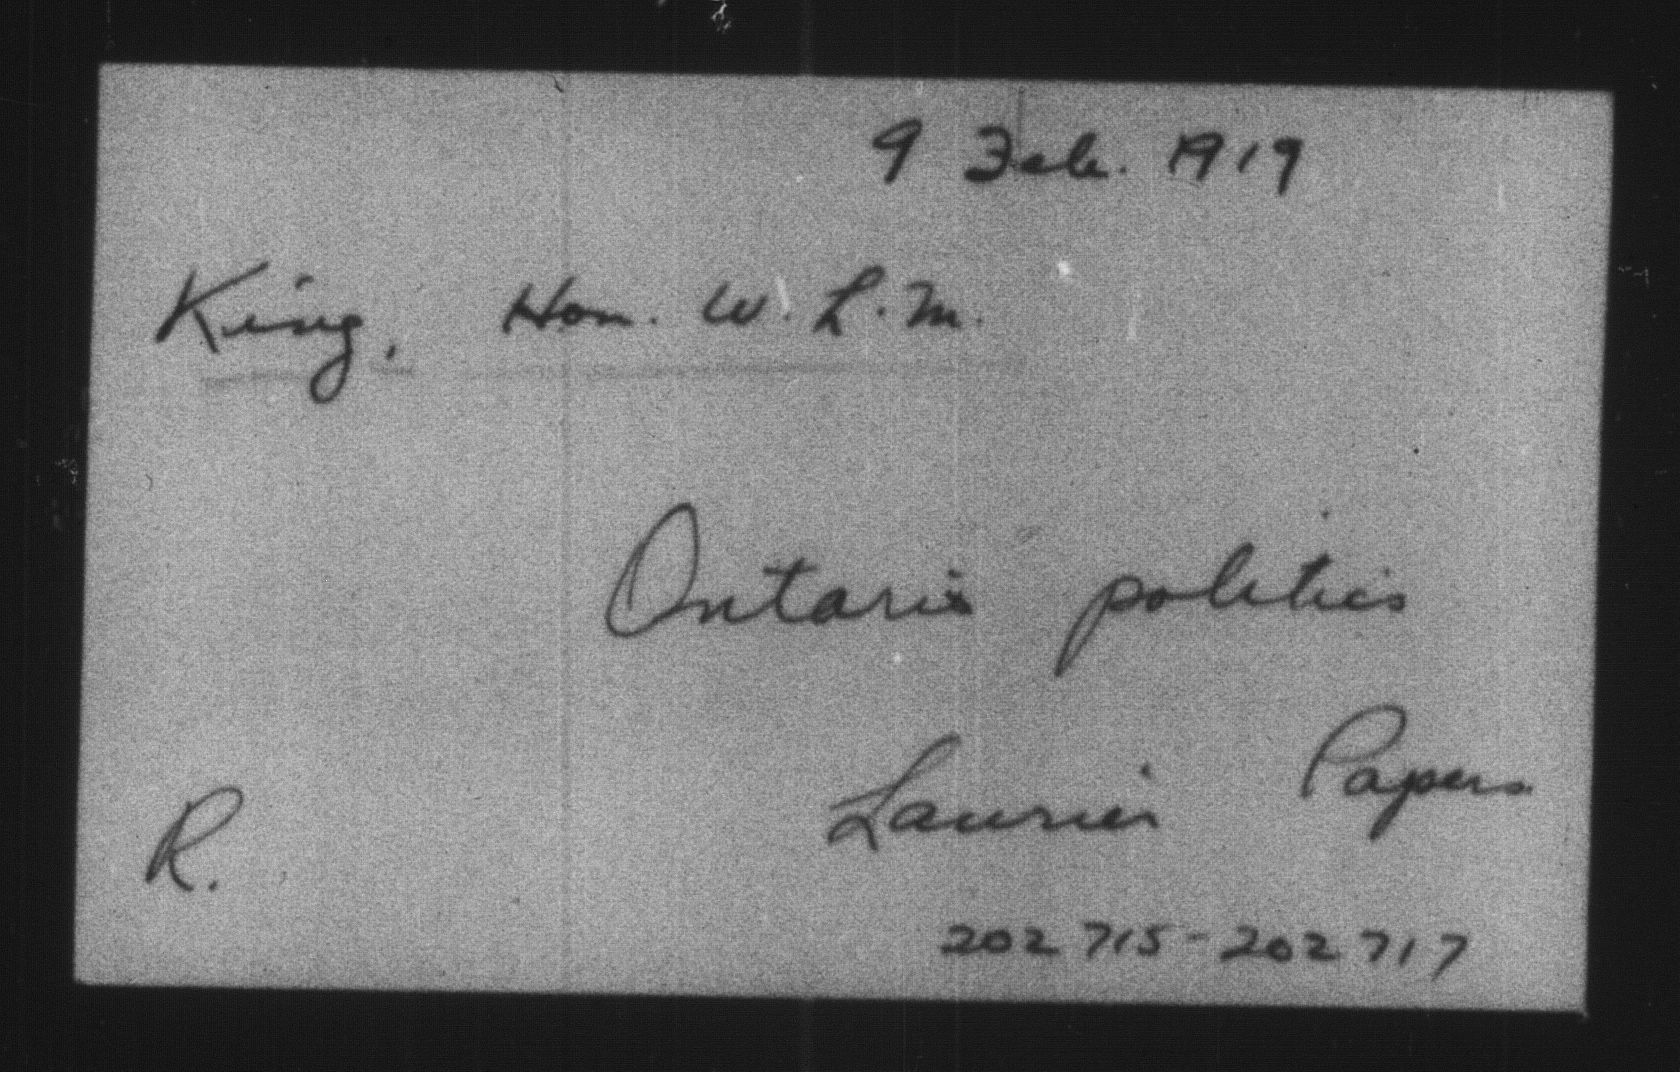 9 Feb. 1919
King, Hon. W. L. M.
Ontario politics
Laurier Papers
R.
202 715 - 202 717